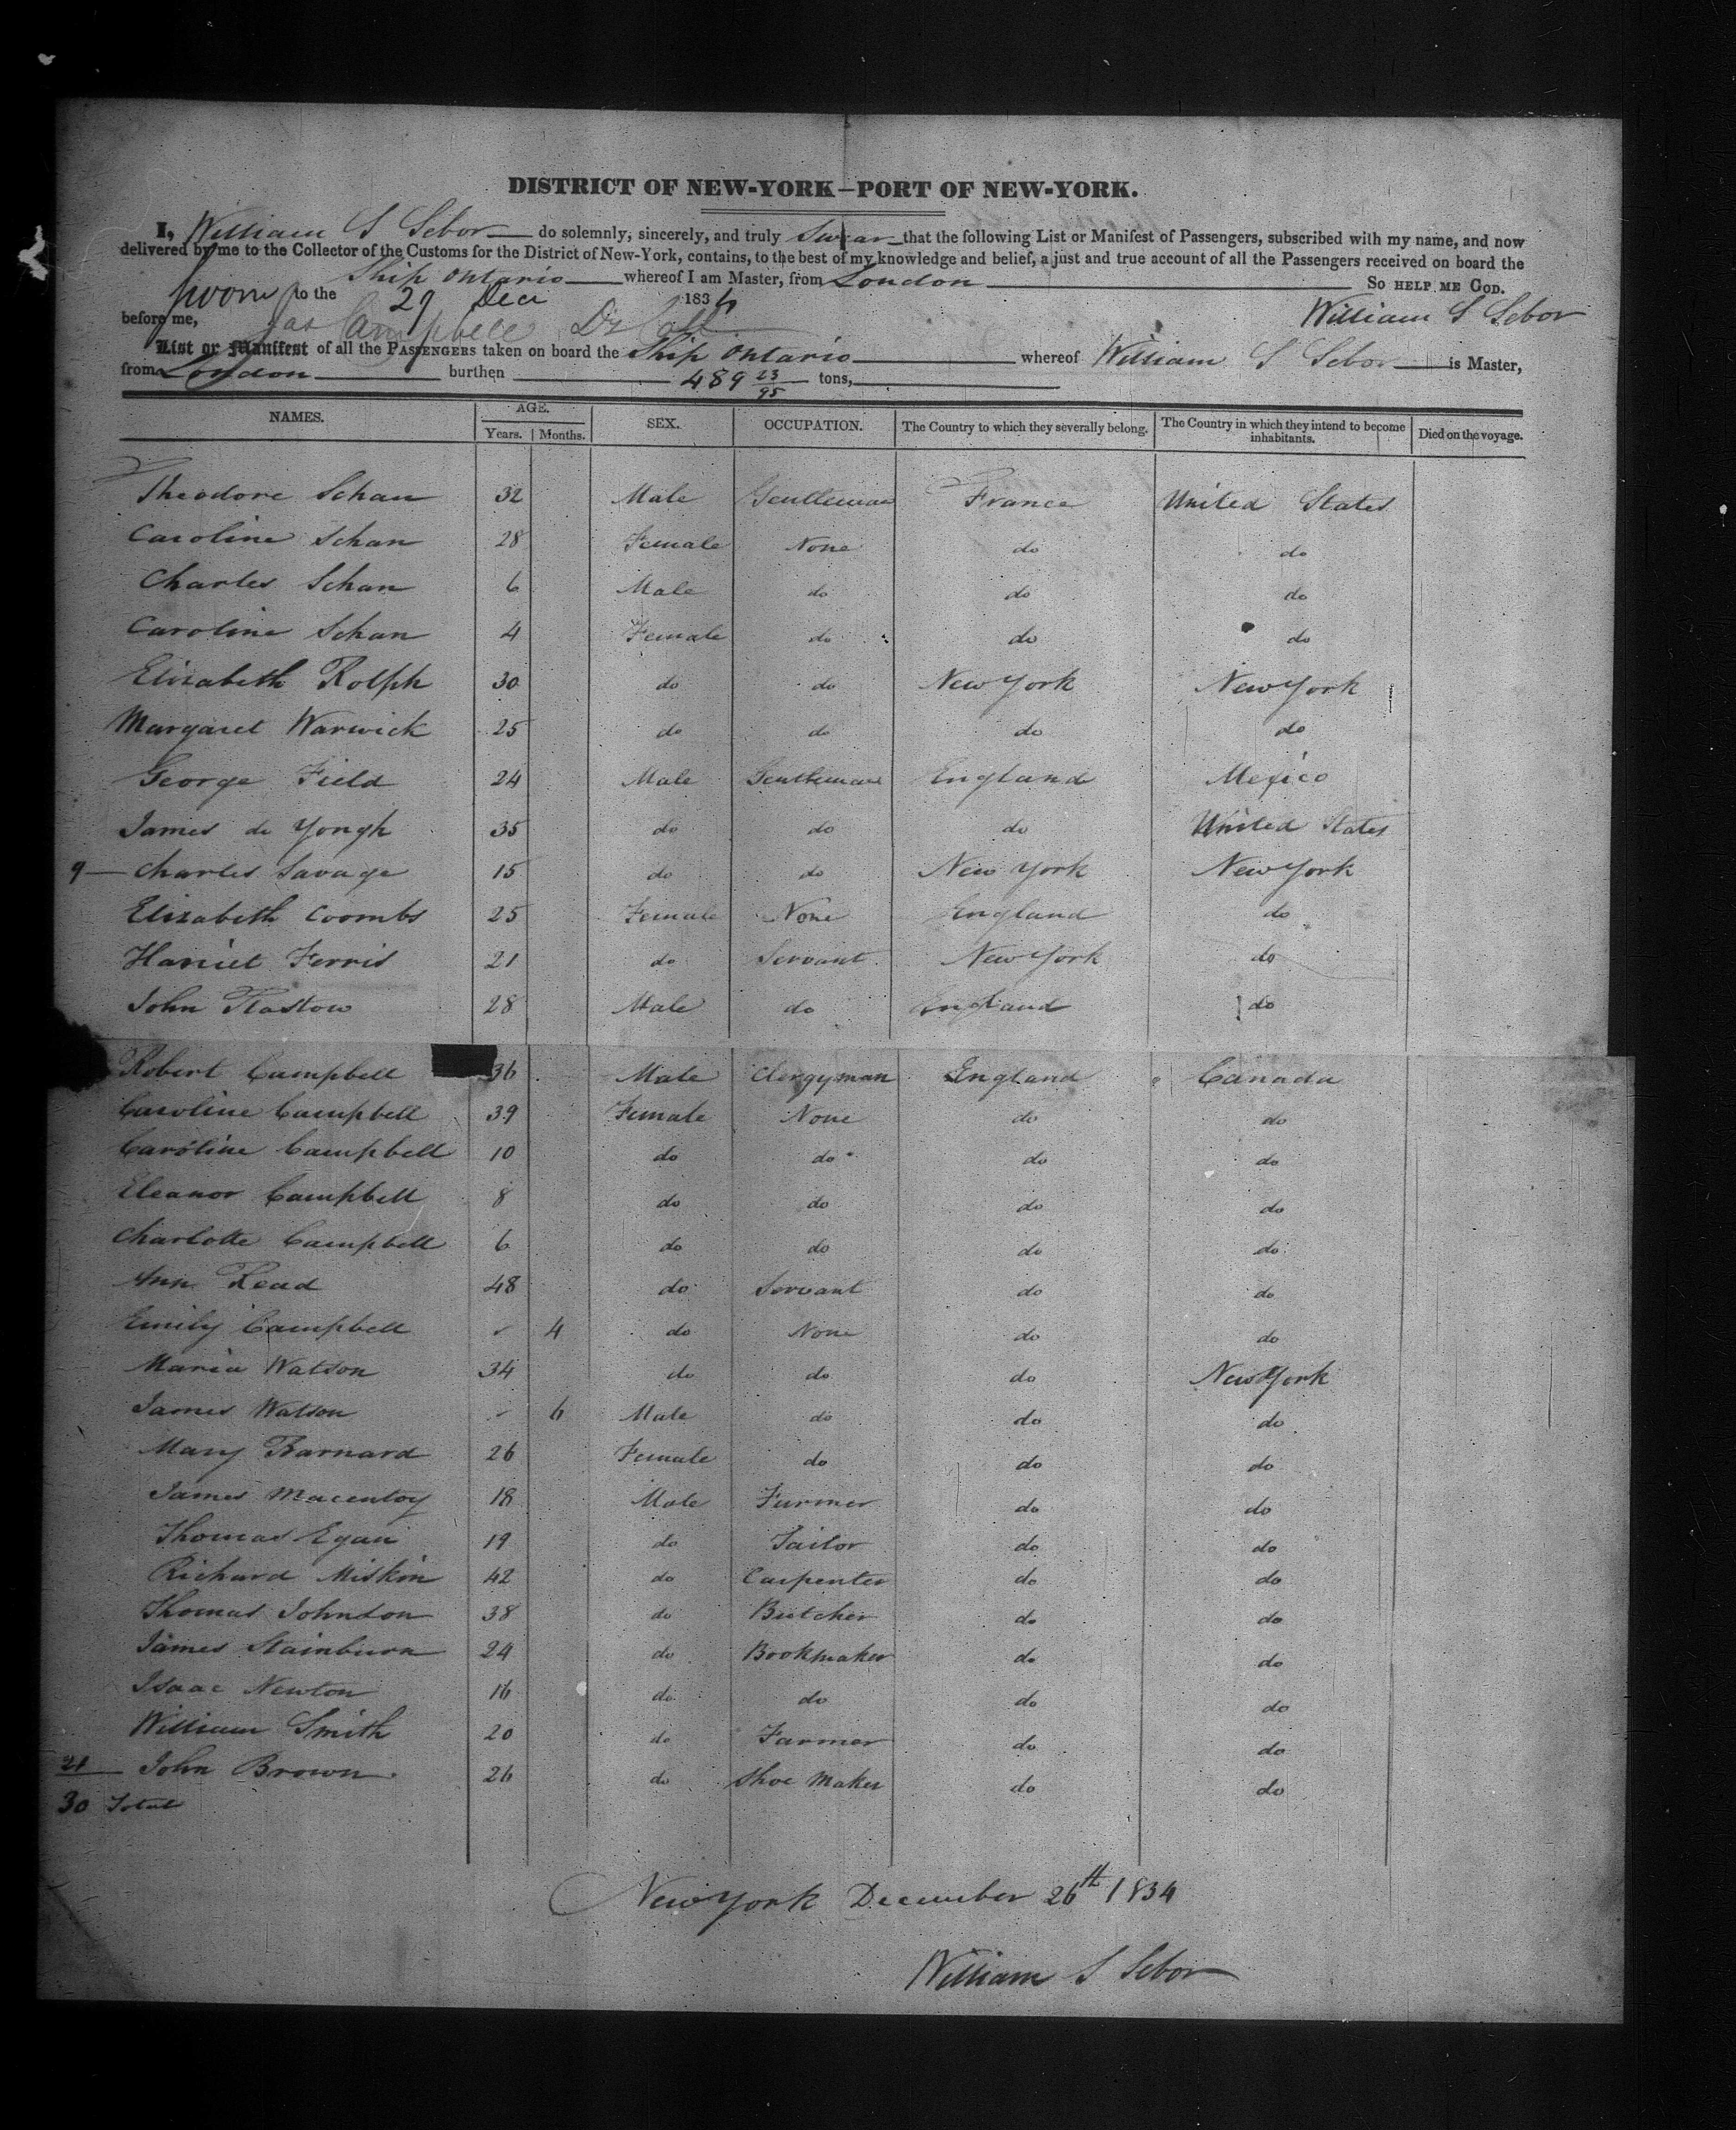 DISTRICT OF NEW-YORK—PORT OF NEW-YORK.
I, William S Sebor do solemnly, sincerely, and truly Swear that the following List or Manifest of Passengers, subscribed with my name, and now
delivered by me to the Collector of the Customs for the District of New-York, contains, to the best of my knowledge and belief, a just and true account of all the Passengers received on board the
Ship Ontario whereof I am Master, from London So HELP ME GOD.
Sworn to the 29 Decr 1834 William S Sebor
before me, Jas Campbell
List or Manifest of all the PASSENGERS taken on board the Ship Ontario whereof William S Sebor is Master,
from London burthen 489 23/95 tons,
NAMES. AGE. Years. Months. SEX. OCCUPATION. The Country to which they severally belong. The Country in which they intend to become inhabitants. Died on the voyage.
Theodore Schan 32 Male Gentleman France United States
Caroline Schan 28 Female None do do
Charles Schan 6 Male do do do
Caroline Schan 4 Female do do do
Elizabeth Rolph 30 do do New York New York
Margaret Warwick 25 do do do do
George Field 24 Male Gentleman England Mexico
James de Yongh 35 do do do United States
9 Charles Savage 15 do do New York New York
Elizabeth Coombs 25 Female None England do
Harriet Ferris 21 do Servant New York do
John 28 Male do England do
Robert Campbell 36 Male Clergyman England Canada
Caroline Campbell 39 Female None do do
Caroline Campbell 10 do do do do
Eleanor Campbell 8 do do do do
Charlotte Campbell 6 do do do do
Ann Read 48 do Servant do do
Emily Campbell 4 do None do do
Maria Watson 34 do do do New York
James Watson 6 Male do do do
Mary Barnard 26 Female do do do
James Macentoy 18 Male Farmer do do
Thomas Egan 19 do Tailor do do
Richard Miskin 42 do Carpenter do do
Thomas Johnson 38 do Butcher do do
James Stainburn 24 do Bookmaker do do
Isaac Newton 16 do do do do
William Smith 20 do Farmer do do
21 John Brown 26 do Shoe Maker do do
30 Total
New York December 26th 1834
William S Sebor